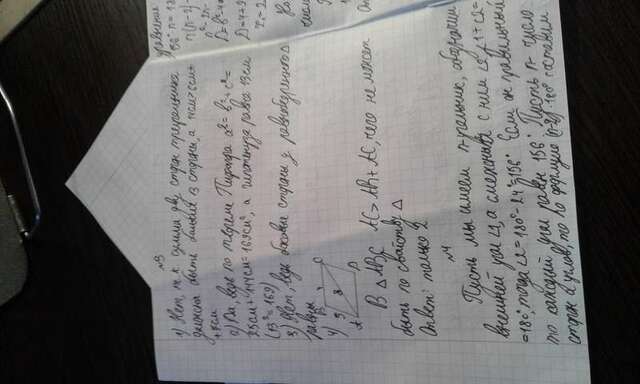 №3
1) Нет, т к сумма двух сторон треугольника
должна быть больше 3 стороны, а 14см > 6см +
+ 7см
2) Да, ведь по теореме Пифагора a² = b² + c² =
25см + 144см = 169см², а гипотенуза равна 13см
(13² = 169)
3) Нет, ведь боковые стороны у равнобедренного Δ
равны
4)
B C
3 8
A D
В Δ ABC AC > AB + AC, чего не может
быть по свойству Δ
Ответ: только 2
№4
Пусть мы имеем n-угольник, обозначим
внешний угол ∠1, а смежный с ним ∠2 ∠1 + ∠2 =
= 180°, тогда ∠2 = 180° - 24° = 156° Если он правильный
то каждый угол равен 156° Пусть n - число
сторон и углов, то по формуле (n-2) · 180° составим
уравнение
156° · n = 18
n(n-1)
n² - 2n -
D = b² - 4a
D = 4 +